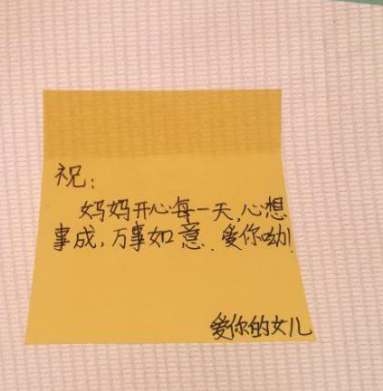 祝:
妈妈开心每一天,心想
事成,万事如意.爱你呦!
爱你的女儿